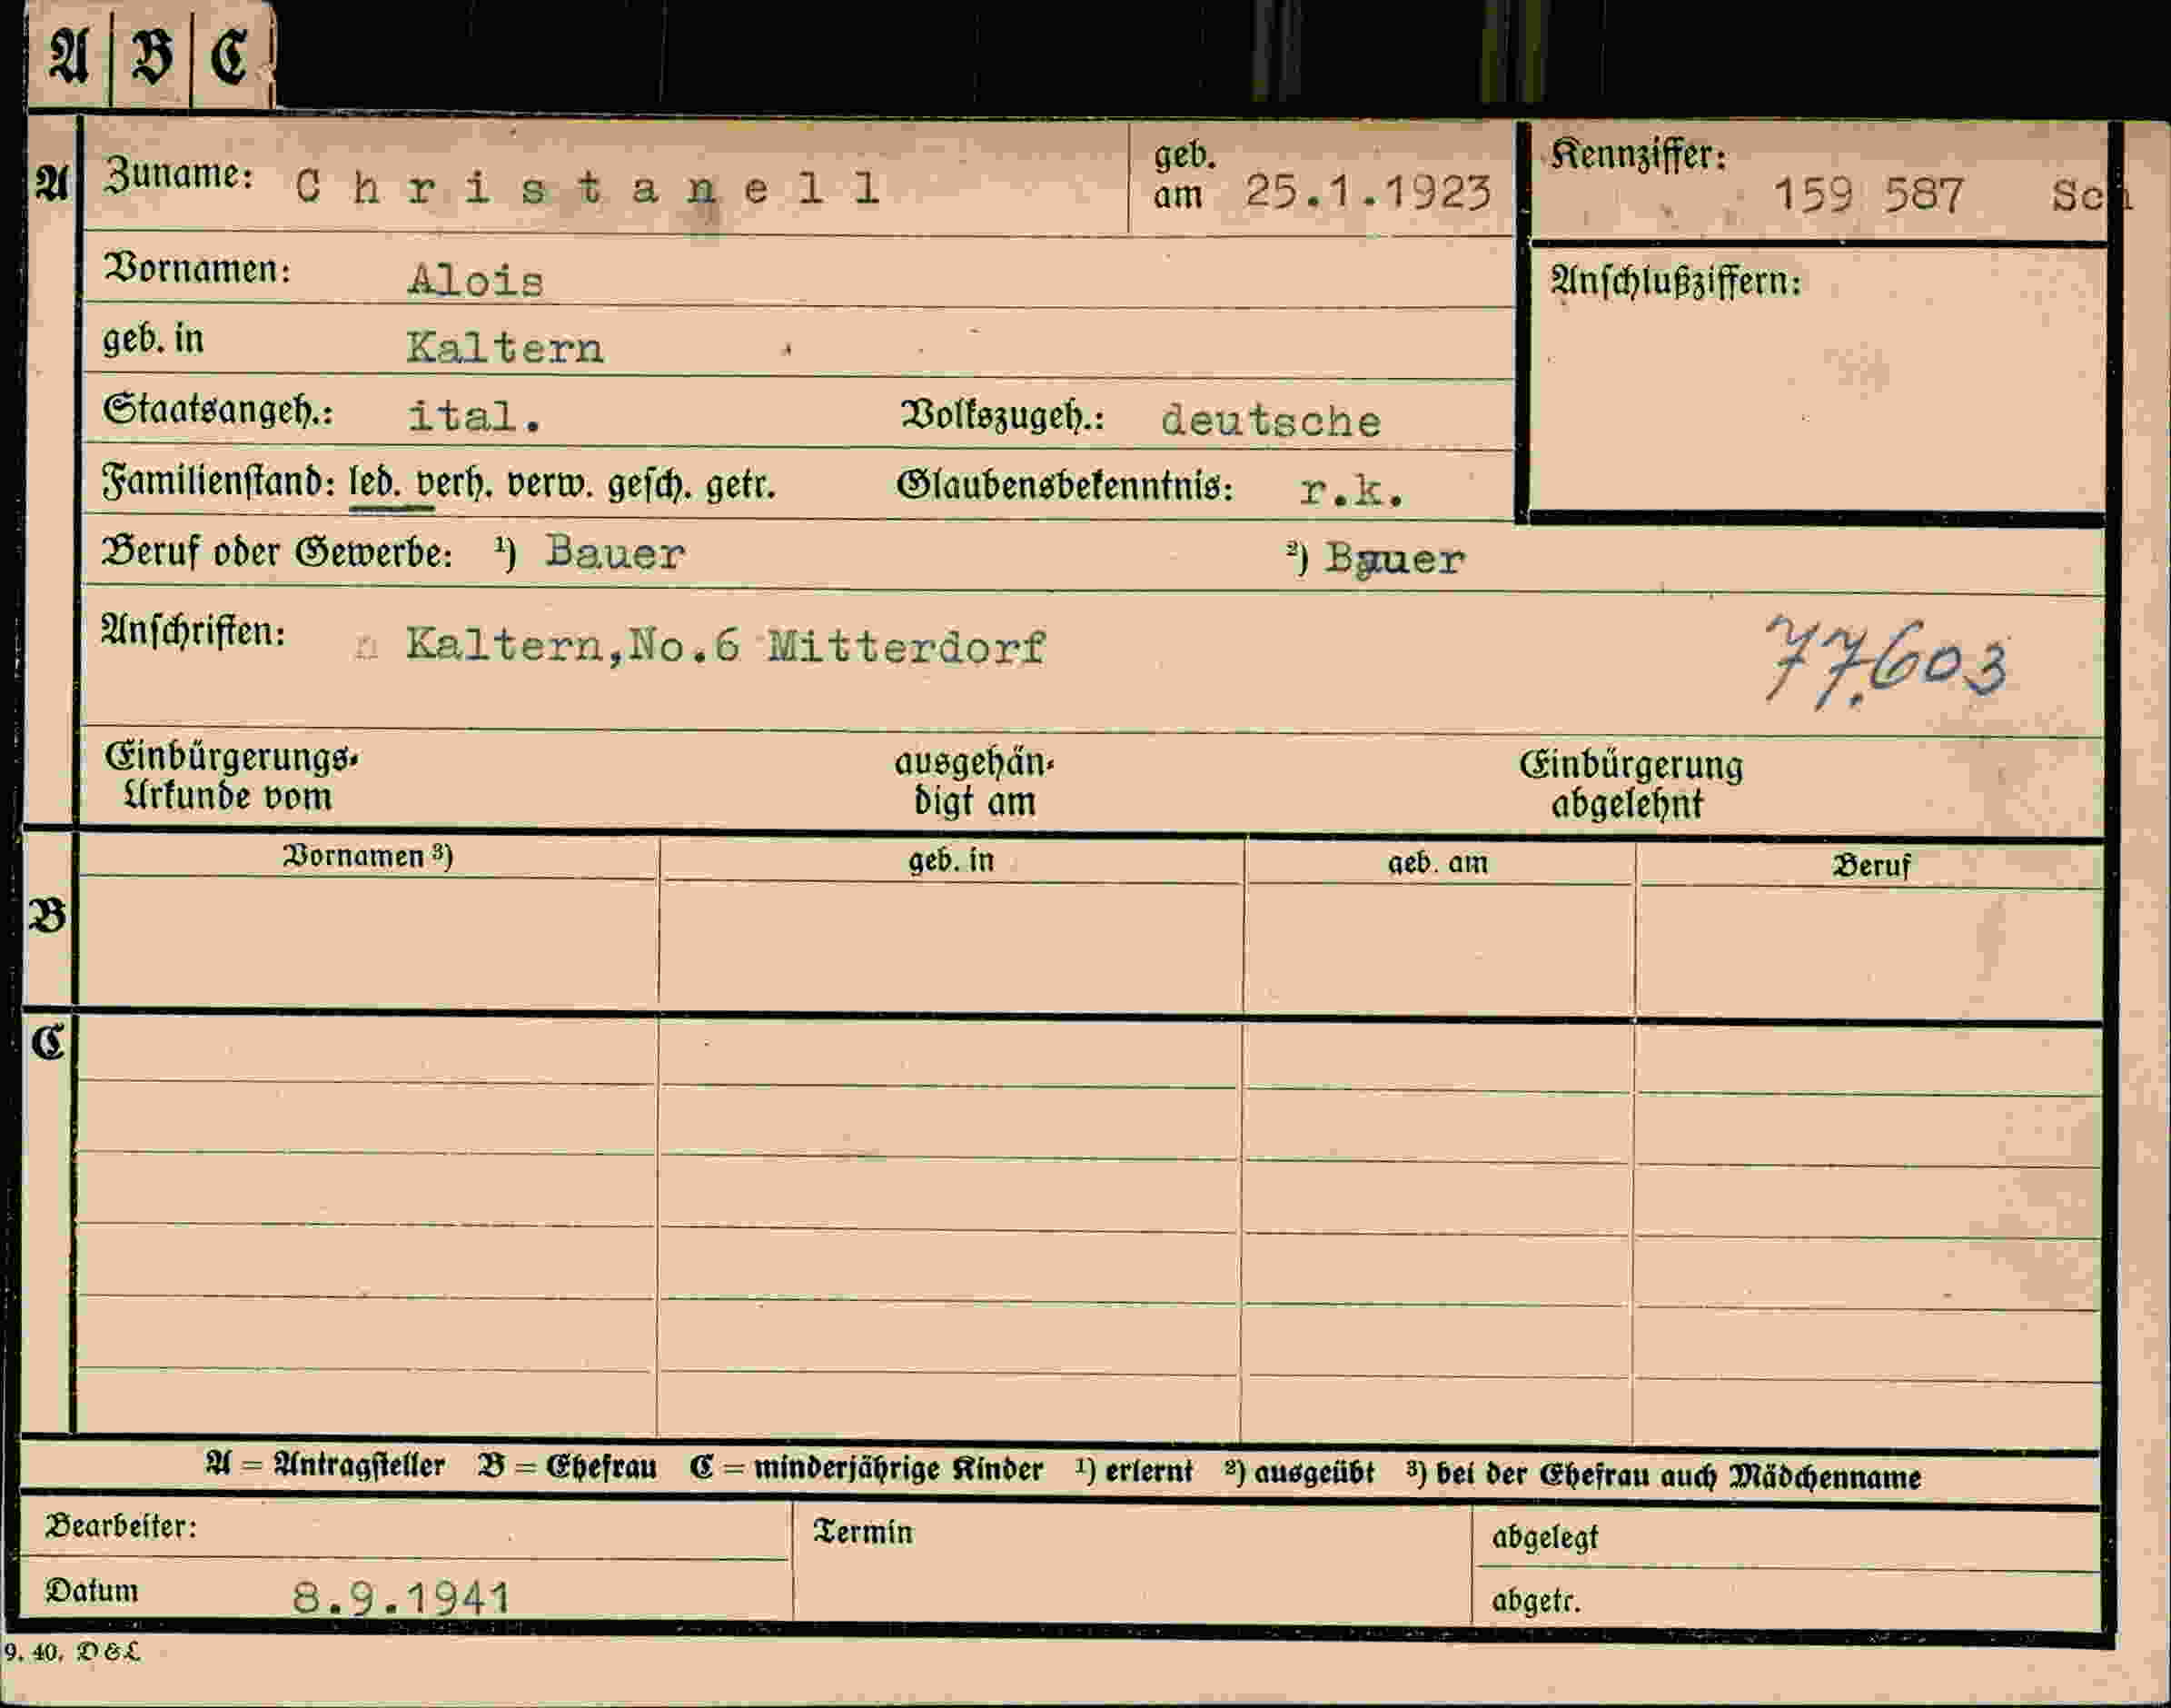 A | B | C
A Zuname: Christanell geb. am 25.1.1923 Kennziffer: 159 587 Sch
Vornamen: Alois Anschlußziffern:
geb. in Kaltern
Staatsangeh.: ital. Volkszugeh.: deutsche
Familienstand: led. verh. verw. gesch. getr. Glaubensbekenntnis: r.k.
Beruf oder Gewerbe: ¹) Bauer ²) Bauer
Anschriften: n Kaltern,No.6 Mitterdorf 77.603
Einbürgerungs-
Urkunde vom
ausgehän-
digt am
Einbürgerung
abgelehnt
B Vornamen ³) geb. in geb. am Beruf
C
A = Antragsteller B = Ehefrau C = minderjährige Kinder ¹) erlernt ²) ausgeübt ³) bei der Ehefrau auch Mädchenname
Bearbeiter: Termin abgelegt
Datum 8.9.1941 abgetr.
9. 40. D&L